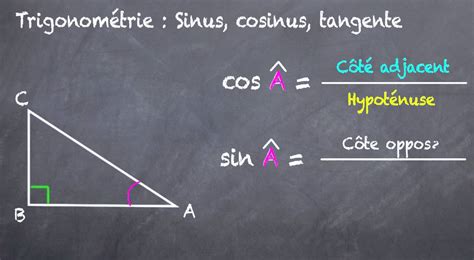 Trigonométrie : Sinus, cosinus, tangente
cos Â = Côté adjacent
Hypoténuse
sin Â = Côte oppos?
C
B
A